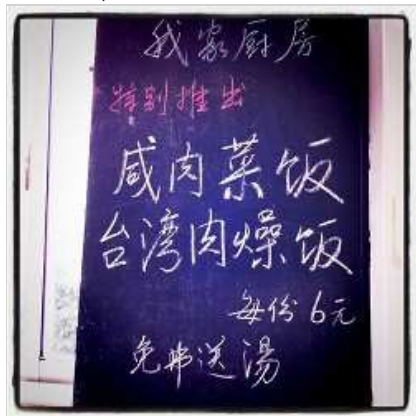 我家厨房
特别推出
咸肉菜饭
台湾肉燥饭
每份6元
免费送湯